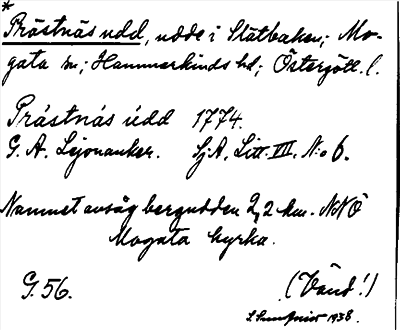 *
Prästnäs udd, udde i Slätbaken; Mo-
gata sn; Hammarkinds hd; Östergötl. l.
Prästnäs udd 1774.
G. A. Lejonanker. Sj.A. Litt. III, N:o 6.
Namnet avsåg bergudden 2,2 km. NNÖ
Mogata kyrka.
G. 56. (Vänd!)
1938.